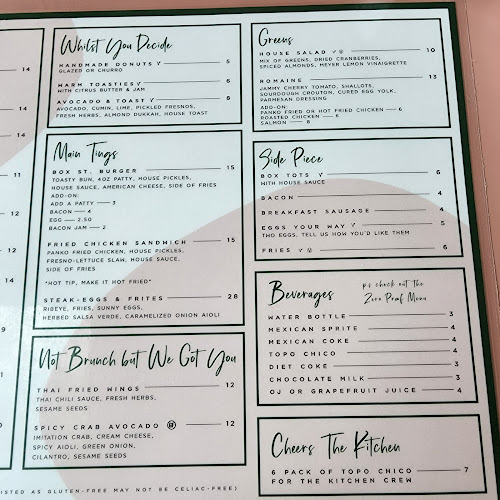 14
14
14
9
11
Whilst You Decide
HANDMADE DONUTS V 5
GLAZED OR CHURRO
WARM TOASTIES V 6
WITH CITRUS BUTTER & JAM
AVOCADO & TOAST V 8
AVOCADO, CUMIN, LIME, PICKLED FRESNOS,
FRESH HERBS, ALMOND DUKKAH, HOUSE TOAST
Main Tings
BOX ST. BURGER 15
TOASTY BUN, 4OZ PATTY, HOUSE PICKLES,
HOUSE SAUCE, AMERICAN CHEESE, SIDE OF FRIES
ADD-ON:
ADD A PATTY — 3
BACON — 4
EGG — 2.50
BACON JAM — 2
FRIED CHICKEN SANDWICH 15
PANKO FRIED CHICKEN, HOUSE PICKLES,
FRESNO-LETTUCE SLAW, HOUSE SAUCE,
SIDE OF FRIES
*HOT TIP, MAKE IT HOT FRIED*
STEAK-EGGS & FRITES 28
RIBEYE, FRIES, SUNNY EGGS,
HERBED SALSA VERDE, CARAMELIZED ONION AIOLI
Not Brunch but We Got You
THAI FRIED WINGS 12
THAI CHILI SAUCE, FRESH HERBS,
SESAME SEEDS
SPICY CRAB AVOCADO 12
IMITATION CRAB, CREAM CHEESE,
SPICY AIOLI, GREEN ONION,
CILANTRO, SESAME SEEDS
ISTED AS GLUTEN-FREE MAY NOT BE CELIAC-FREE)
Greens
HOUSE SALAD V 10
MIX OF GREENS, DRIED CRANBERRIES,
SPICED ALMONDS, MEYER LEMON VINAIGRETTE
ROMAINE 13
JAMMY CHERRY TOMATO, SHALLOTS,
SOURDOUGH CROUTON, CURED EGG YOLK,
PARMESAN DRESSING
ADD-ON:
PANKO FRIED OR HOT FRIED CHICKEN — 6
ROASTED CHICKEN — 6
SALMON — 8
Side Piece
BOX TOTS V 6
WITH HOUSE SAUCE
BACON 4
BREAKFAST SAUSAGE 4
EGGS YOUR WAY V 5
TWO EGGS, TELL US HOW YOU'D LIKE THEM
FRIES V 6
Beverages
ps check out the
Zero Proof Menu
WATER BOTTLE 3
MEXICAN SPRITE 4
MEXICAN COKE 4
TOPO CHICO 4
DIET COKE 3
CHOCOLATE MILK 3
OJ OR GRAPEFRUIT JUICE 4
Cheers The Kitchen
6 PACK OF TOPO CHICO 7
FOR THE KITCHEN CREW